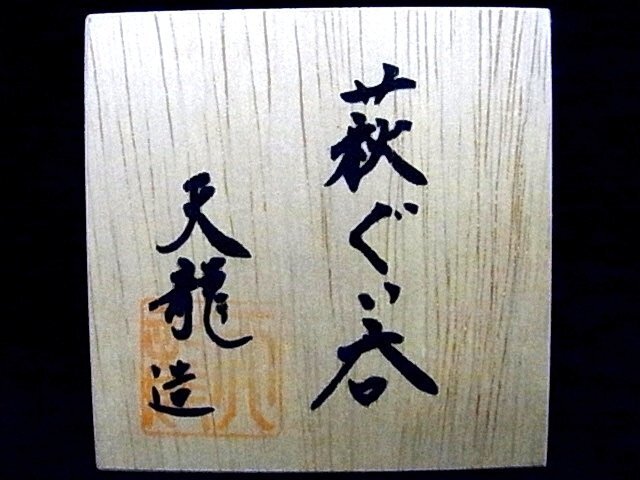 萩ぐい呑
天龍造